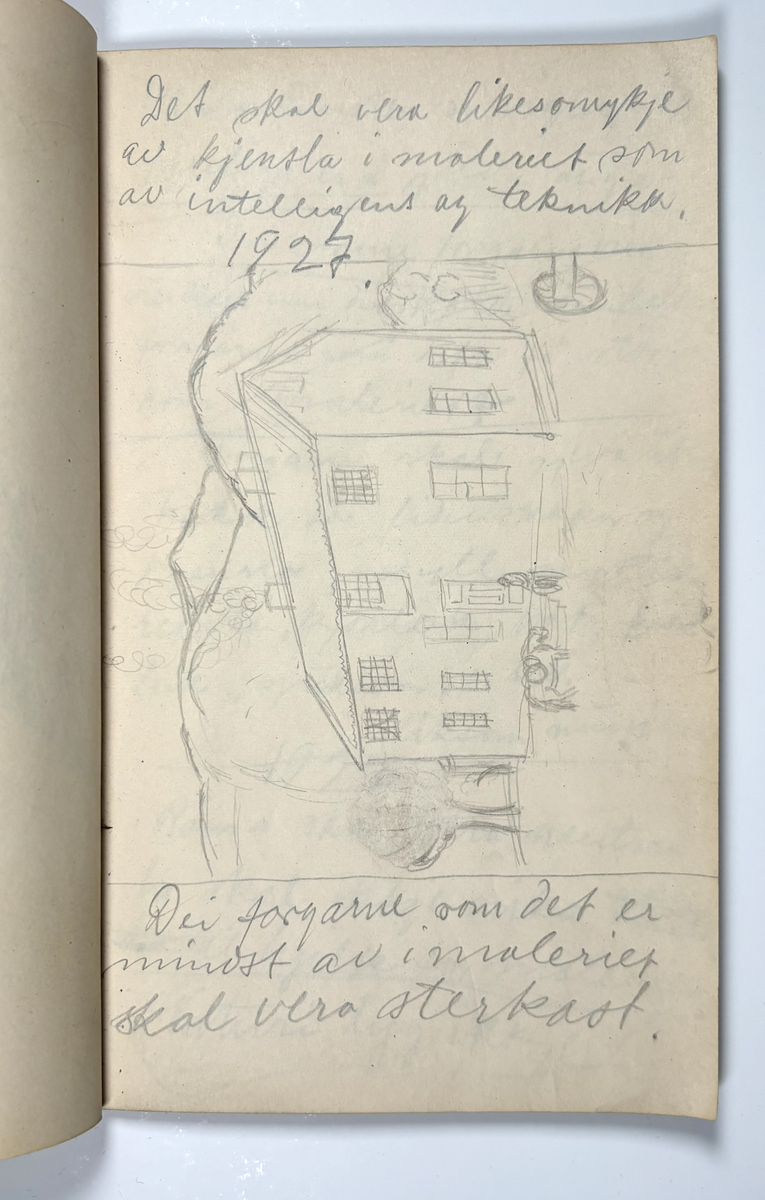 Det skal vera likesomykje
av kjensla i maleriet som
av intelligens og teknikk.
1927.
Dei fargarne som det er
mindst av i maleriet
skal vera sterkast.